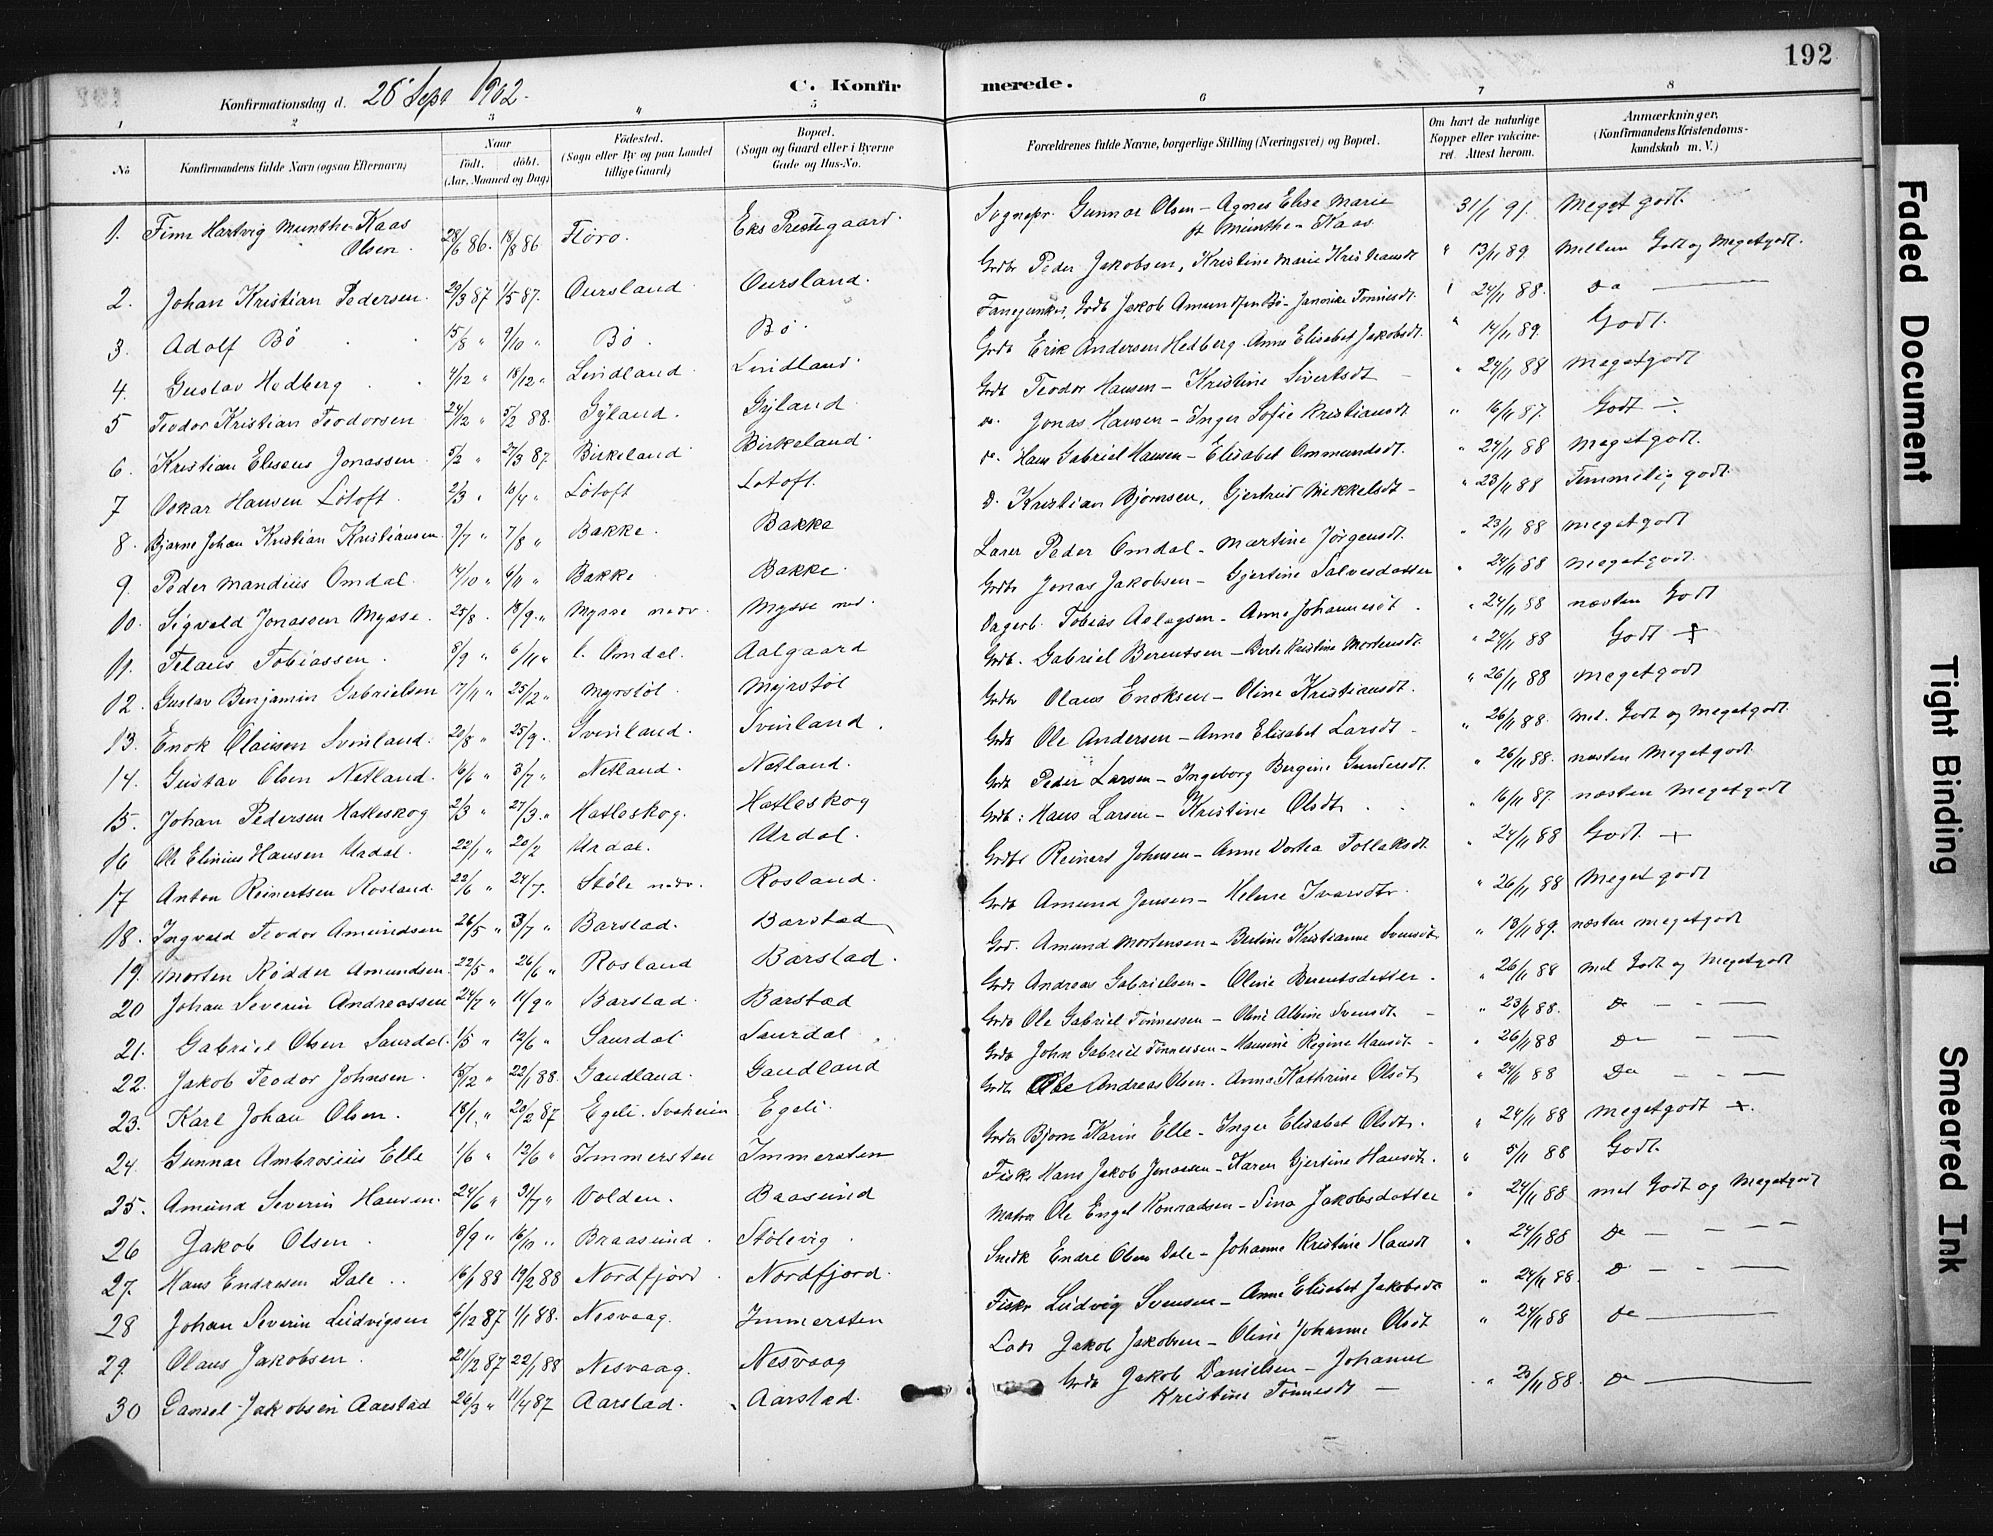 192
Konfirmationsdag d. 26 Sept 1902.
C. Konfirmerede.
1 2 3 4 5 6 7 8
No
Konfirmandens fulde Navn (ogsaa Efternavn)
Naar født. døbt. (Aar, Maaned og Dag)
Fødested. (Sogn eller By og paa Landet tillige Gaard)
Bopæl. (Sogn og Gaard eller i Byerne Gade og Hus-No.
Forældrenes fulde Navne, borgerlige Stilling (Næringsvei) og Bopæl.
Om havt de naturlige Kopper eller vakcineret. Attest herom.
Anmærkninger. (Konfirmandens Kristendomskundskab m. V.)
1. Finn Hartvig Munthe-Kaas Olsen. 28/6 86. 18/8 86 Florø. Eks Prestegaard. Sognepr. Gunnar Olsen - Agnes Elise Marie f. Munthe-Kaas 31/1 91. Meget godt.
2. Johan Kristian Pedersen. 29/3 87 1/5 87. Oursland Oursland. Grdbr Peder Jakobsen, Kristine Marie Kristiansdt " 13/11 89 Mellem Godt og Megetgodt.
3. Adolf Bø 15/8 " 9/10 " Bø. Bø. Fanejunker, Grdb Jakob Amundsen Bø - Jannike Tønnesdt. " 24/11 88. Do
4. Gustav Hedberg 4/12 " 18/12 " Lindland Lindland Grdb Erik Andersen Hedberg. Anne Elisabet Jakobsdt. " 14/11 89. Godt.
5 Teodor Kristian Teodorsen 24/12 " 5/2 88. Gyland. Gyland Grdb Teodor Hansen - Kristine Sivertsdt " 24/11 88 Megetgodt
6. Kristian Eliseus Jonassen 5/2 " 27/3 87. Birkeland Birkeland. do. Jonas Hansen - Inger Sofie Kristiansdt " 16/11 87 Godt ÷.
7 Oskar Hansen Lotoft. 2/3 " 10/4 " Lotoft Lotoft. do. Hans Gabriel Hansen - Elisabet Ommundsdt. " 24/11 88 Megetgodt.
8. Bjarne Johan Kristian Kristiansen 9/7 " 7/8 " Bakke. Bakke D. Kristian Bjørnsen, Gjertrud Mikkelsdt - " 23/11 88 Temmelig godt
9. Peder Mandius Omdal. 14/10 " 6/11 " Bakke Bakke. Lærer Peder Omdal - Martine Jørgensdt. " 23/11 88 Megetgodt
10. Sigvald Jonassen Mysse. 25/8. 18/9. " Mysse nedr. Mysse ned. Grdbr Jonas Jakobsen - Gjertine Salvesdatter " 24/11 88 Megetgodt.
11. Telaus Tobiassen. 8/9 " 6/11 " l. Omdal. Aalgaard Dagarb. Tobias Aslagsen - Anne Johannesdt. " 24/11 88 næsten Godt
12. Gustav Benjamin Gabrielsen 17/11 " 25/12 " Myrstøl. Myrstøl Grdb. Gabriel Berentsen - Berte Kristine Mortensdt. " 24/11 88 Godt +
13. Enok Olausen Svinland. 20/8 " 25/9. Svinland. Svinland. Grdbr Olaus Enoksen - Oline Kristiansdt. " 26/11 88 Megetgodt
14. Gustav Olsen Netland. 16/6 " 3/7 " Netland. Netland. Grdb Ole Andersen - Anne Elisabet Larsdt - " 26/11 88. Mel. Godt og Megetgodt.
15. Johan Pedersen Hatleskog 2/3 " 27/3. " Hatleskog. Hatleskog Grdb Peder Larsen - Ingeborg Bergine Gundersdt. " 26/11 88. næsten Megetgodt.
16 Ole Elinius Hansen Urdal. 22/1 " 20/2 Urdal. Urdal. Grdb: Hans Larsen - Kristine Olsdt " 16/11 87. næsten Megetgodt
17 Anton Reinertsen Rosland. 22/6 " 24/7. Støle nedr. Rosland. Grdb Reinert Johnsen - Anne Dortea Tollaksdt. " 24/11 88 Godt. +
18. Ingvald Teodor Amundsen 26/5 " 3/7 " Barstad. Barstad Grdb Amund Jensen - Helene Ivarsdtr. " 26/11 88 Meget godt
19. Morten Rødder Amundsen 22/5 " 26/6 " Rosland Barstad. Grd. Amund Mortensen - Bertine Kristianne Svensdt. " 13/11 89. næsten megetgodt
20 Johan Severin Andreassen 24/7 " 11/9 " Barstad. Barstad Grdb Andreas Gabrielsen - Oline Berentsdatter. " 26/11 88 Mel Godt og Megetgodt
21. Gabriel Olsen Saurdal. 1/5 " 12/6 " Saurdal Saurdal Grdb Ole Gabriel Tønnessen - Oline Alvine Svensdt. " 23/11 88. Do
22. Jakob Teodor Johnsen. 15/12 " 22/1 88. Gaudland. Gaudland Grdb John Gabriel Tønnessen - Hansine Regine Hansdt - " 26/11 88 Do
23. Karl Johan Olsen. 18/1. " 20/2 87 Egeli. Svaheim Egeli. Grdb Ole Andreas Olsen. Anna Kathrine Olsdt " 24/11 88 Do
24. Gunnar Ambrosius Elle 1/6 " 12/6 " Immersten Immersten Grdbr Bjørn Karin Elle - Inger Elisabet Olsdt. " 24/11 88 Megetgodt +.
25. Amund Severin Hansen. 24/6 " 31/7 " Volden. Baasund Fisk Hans Jakob Jonassen - Karen Gjertine Hansdt. " 5/11 88 Godt.
26 Jakob Olsen. 8/9 " 16/10 " Braasund. Stølevig. Matros Ole Engel Konradsen - Sina Jakobsdatter " 24/11 88 mel Godt og Megetgodt
27. Hans Endresen Dale. 16/1 88 19/2 88 Nordfjord. Nordfjord. Snedk Endre Olsen Dale - Johanne Kristine Hansdt " 24/11 88 Do
28 Johan Severin Ludvigsen 6/12 87 1/1 88. Nesvaag. Immersten Fiskr Ludvig Svensen - Anne Elisabet Jakobsdt " 24/11 88. D
29. Olaus Jakobsen. 21/12 87 22/1 88 Nesvaag. Nesvaag Lods Jakob Jakobsen - Oline Johanne Olsdt " 24/11 88 Do
30 Daniel Jakobsen Aarstad 26/3 " 11/4 87 Aarstad. Aarstad. Grdb Jakob Danielsen - Johanne Kristine Tønnesdt - " 23/11 88. Do
Faded Document
Tight Binding
Smeared Ink